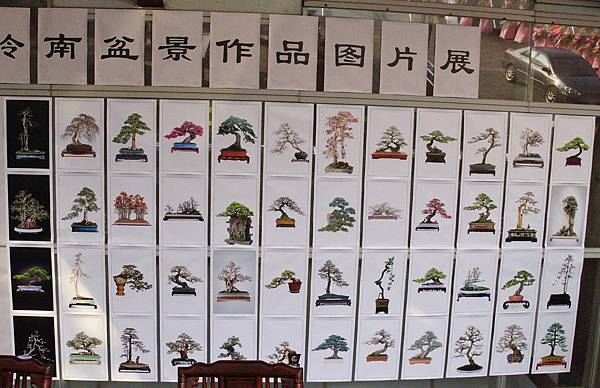 岭南盆景作品图片展